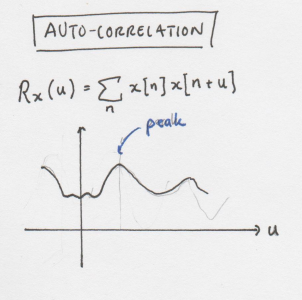 AUTO-CORRELATION
Rₓ(u) = ∑ x[n] x[n+u]
n
peak
u